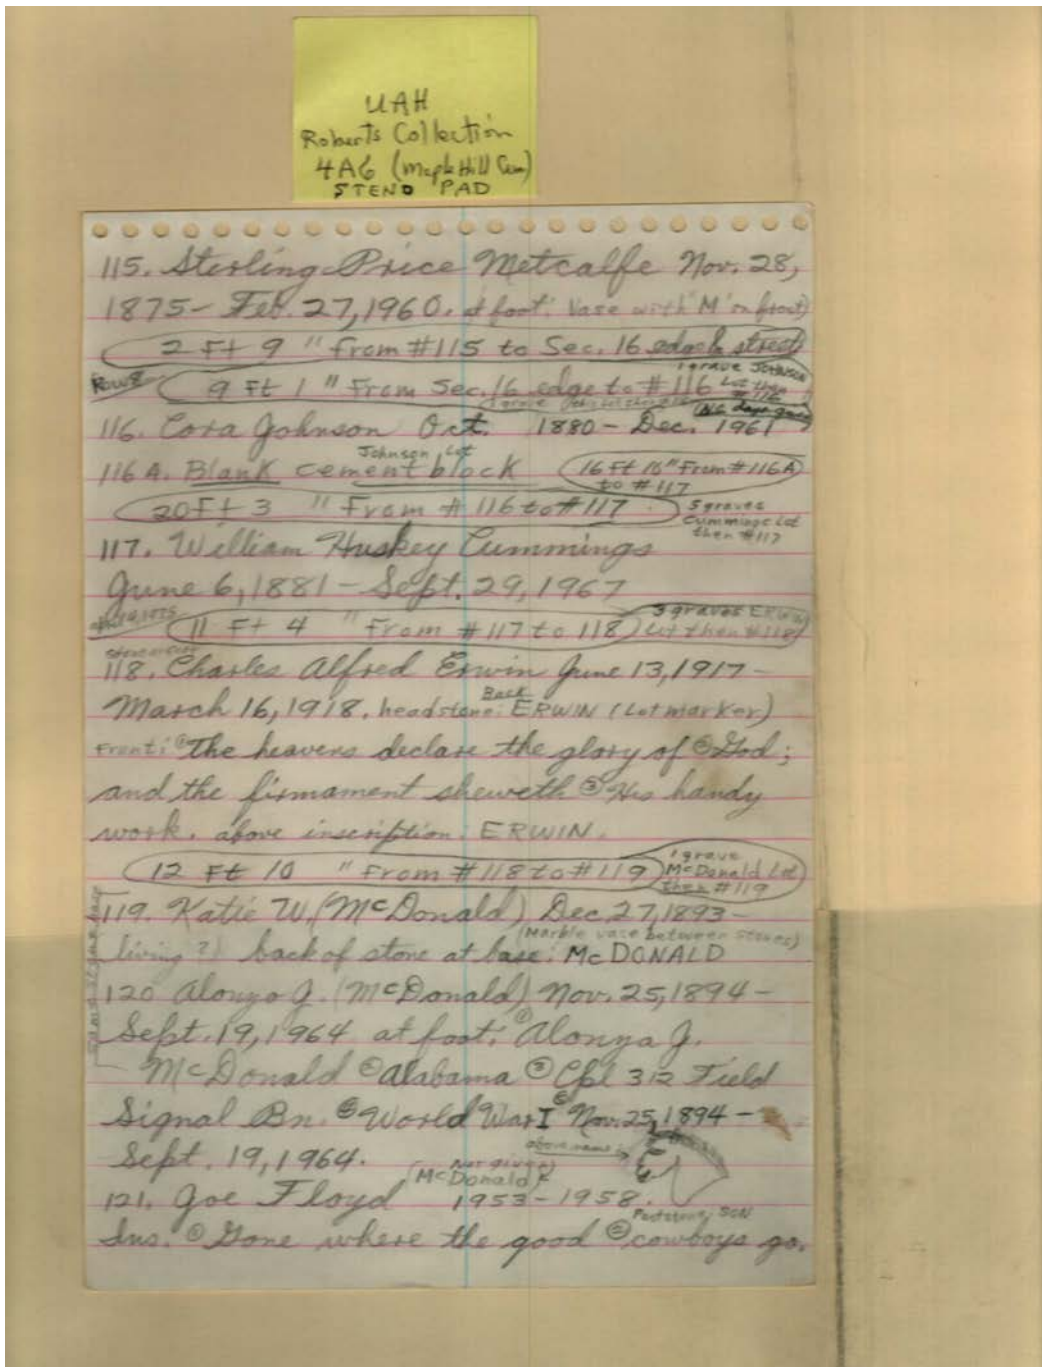 UAH
Roberts Collection
4A6 (Maple Hill Cem)
STENO PAD
115. Sterling Price Metcalfe Nov. 28,
1875 - Feb. 27, 1960. at foot: Vase with "M" on front)
2 Ft 9 " from #115 to Sec. 16 edge & street
Row 8
9 Ft 1 " From Sec. 16 edge to #116
1 grave Johnson
Lot then
#116
(No days given)
116. Cora Johnson Oct. 1880 - Dec. 1961
Johnson Lot
116 A. Blank cement block
16 Ft 10" From #116A
to #117
20 Ft 3 " From #116 to #117
5 graves
Cummings Lot
then #117
117. William Huskey Cummings
June 6, 1881 - Sept. 29, 1967
11 Ft 4 " From #117 to 118
3 graves ERWIN
Lot then #118
118. Charles Alfred Erwin June 13, 1917 -
March 16, 1918. headstone: Back ERWIN (Lot marker)
Front: ① The heavens declare the glory of ② God;
and the firmament sheweth ③ His handy
work. above inscription: ERWIN.
12 Ft 10 " From #118 to #119
1 grave
McDonald Lot
then #119
119. Katie W. (McDonald) Dec. 27, 1893 -
(Marble vase between stones)
living?) back of stone at base: McDONALD
120 Alonzo J. (McDonald) Nov. 25, 1894 -
Sept. 19, 1964 at foot: ① Alonza J.
McDonald ② Alabama ③ Cpl 312 Field
Signal Bn. World War I Nov. 25, 1894 -
Sept. 19, 1964.
above name
(McDonald) Not given
121. Joe Floyd 1953 - 1958.
Footstone: SON
Ins. ① Gone where the good ② cowboys go.